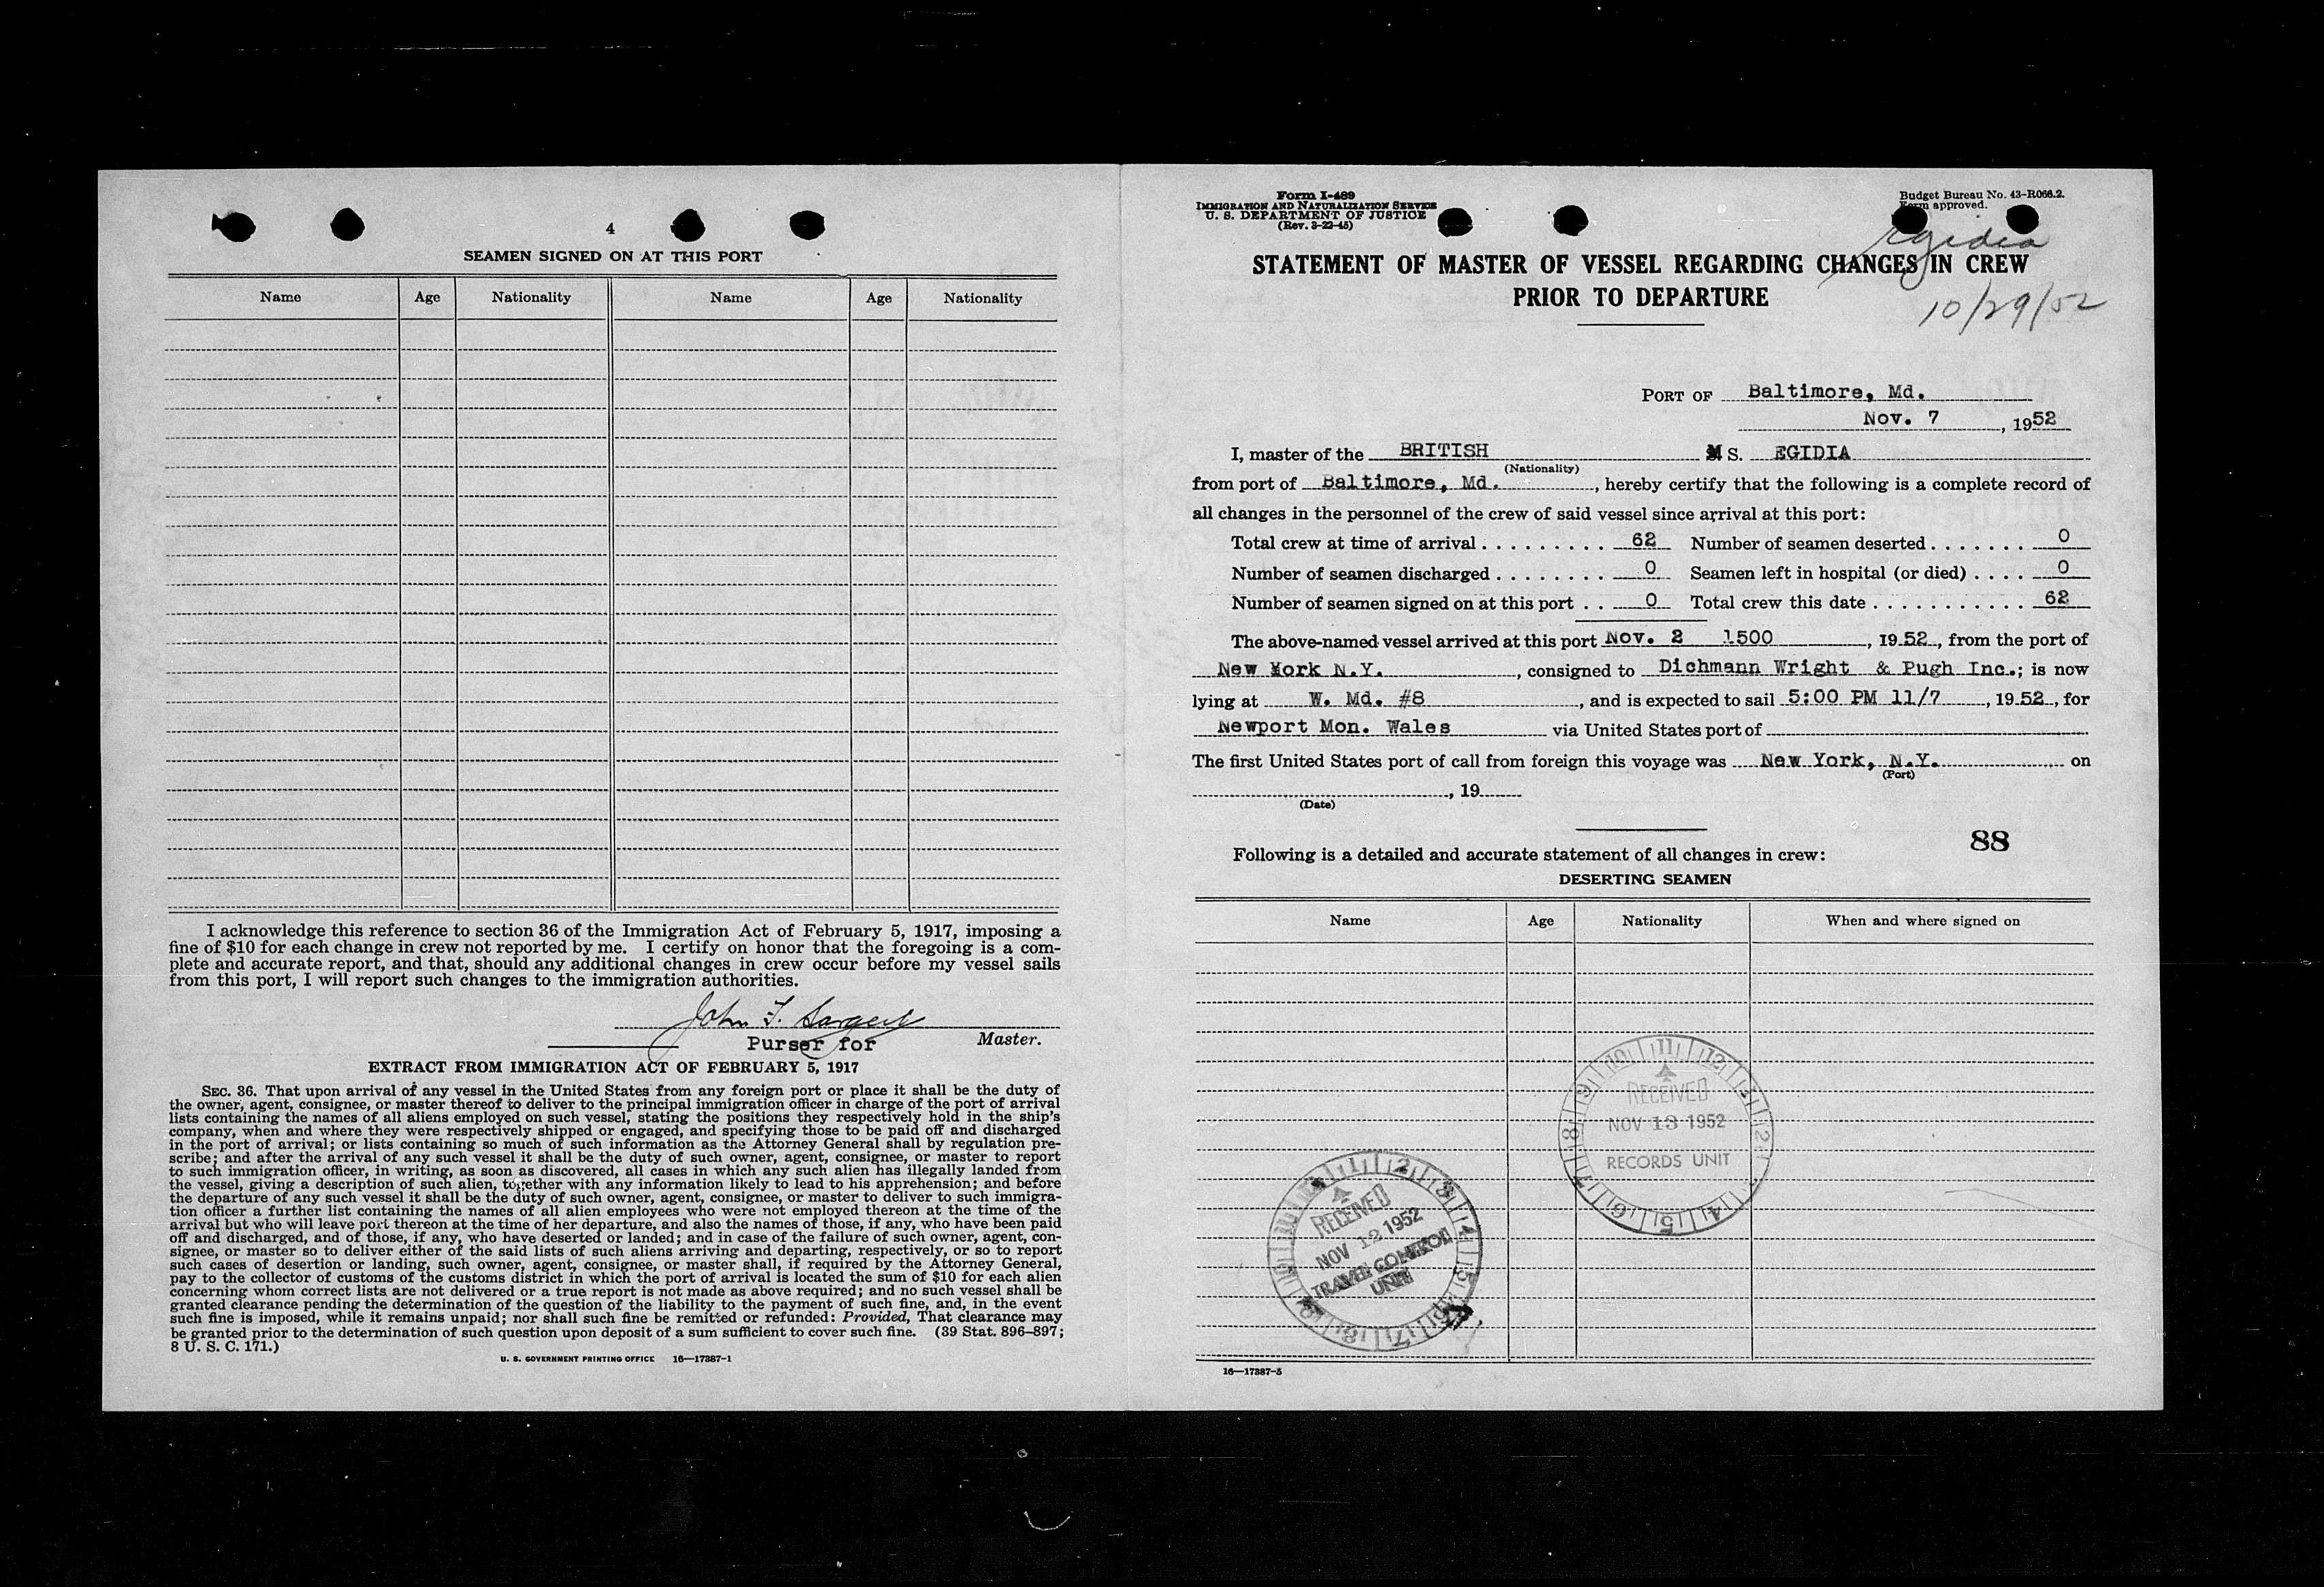 4
SEAMEN SIGNED ON AT THIS PORT
Name Age Nationality Name Age Nationality
I acknowledge this reference to section 36 of the Immigration Act of February 5, 1917, imposing a
fine of $10 for each change in crew not reported by me. I certify on honor that the foregoing is a com-
plete and accurate report, and that, should any additional changes in crew occur before my vessel sails
from this port, I will report such changes to the immigration authorities.
John F. Sargent
Purser for Master.
EXTRACT FROM IMMIGRATION ACT OF FEBRUARY 5, 1917
SEC. 36. That upon arrival of any vessel in the United States from any foreign port or place it shall be the duty of
the owner, agent, consignee, or master thereof to deliver to the principal immigration officer in charge of the port of arrival
lists containing the names of all aliens employed on such vessel, stating the positions they respectively hold in the ship's
company, when and where they were respectively shipped or engaged, and specifying those to be paid off and discharged
in the port of arrival; or lists containing so much of such information as the Attorney General shall by regulation pre-
scribe; and after the arrival of any such vessel it shall be the duty of such owner, agent, consignee, or master to report
to such immigration officer, in writing, as soon as discovered, all cases in which any such alien has illegally landed from
the vessel, giving a description of such alien, together with any information likely to lead to his apprehension; and before
the departure of any such vessel it shall be the duty of such owner, agent, consignee, or master to deliver to such immigra-
tion officer a further list containing the names of all alien employees who were not employed thereon at the time of the
arrival but who will leave port thereon at the time of her departure, and also the names of those, if any, who have been paid
off and discharged, and of those, if any, who have deserted or landed; and in case of the failure of such owner, agent, con-
signee, or master so to deliver either of the said lists of such aliens arriving and departing, respectively, or so to report
such cases of desertion or landing, such owner, agent, consignee, or master shall, if required by the Attorney General,
pay to the collector of customs of the customs district in which the port of arrival is located the sum of $10 for each alien
concerning whom correct lists are not delivered or a true report is not made as above required; and no such vessel shall be
granted clearance pending the determination of the question of the liability to the payment of such fine, and, in the event
such fine is imposed, while it remains unpaid; nor shall such fine be remitted or refunded: Provided, That clearance may
be granted prior to the determination of such question upon deposit of a sum sufficient to cover such fine. (39 Stat. 896–897;
8 U. S. C. 171.)
U. S. GOVERNMENT PRINTING OFFICE 16—17387-1
Form I-489
IMMIGRATION AND NATURALIZATION SERVICE
U. S. DEPARTMENT OF JUSTICE
(Rev. 3-22-45)
Budget Bureau No. 43-R066.2.
Form approved.
Egidia
STATEMENT OF MASTER OF VESSEL REGARDING CHANGES IN CREW
PRIOR TO DEPARTURE
10/29/52
PORT OF Baltimore, Md.
Nov. 7, 1952
I, master of the BRITISH MS. EGIDIA
(Nationality)
from port of Baltimore, Md., hereby certify that the following is a complete record of
all changes in the personnel of the crew of said vessel since arrival at this port:
Total crew at time of arrival . . . . . . . . . 62 Number of seamen deserted . . . . . . . 0
Number of seamen discharged . . . . . . . . 0 Seamen left in hospital (or died) . . . . 0
Number of seamen signed on at this port . . 0 Total crew this date . . . . . . . . . . . 62
The above-named vessel arrived at this port Nov. 2 1500, 1952, from the port of
New York N.Y., consigned to Dichmann Wright & Pugh Inc.; is now
lying at W. Md. #8, and is expected to sail 5:00 PM 11/7, 1952, for
Newport Mon. Wales via United States port of
The first United States port of call from foreign this voyage was New York, N.Y. on
(Port)
, 19
(Date)
88
Following is a detailed and accurate statement of all changes in crew:
DESERTING SEAMEN
Name Age Nationality When and where signed on
RECEIVED
NOV 13 1952
RECORDS UNIT
RECEIVED
NOV 12 1952
TRAVEL CONTROL
UNIT
16—17387-5